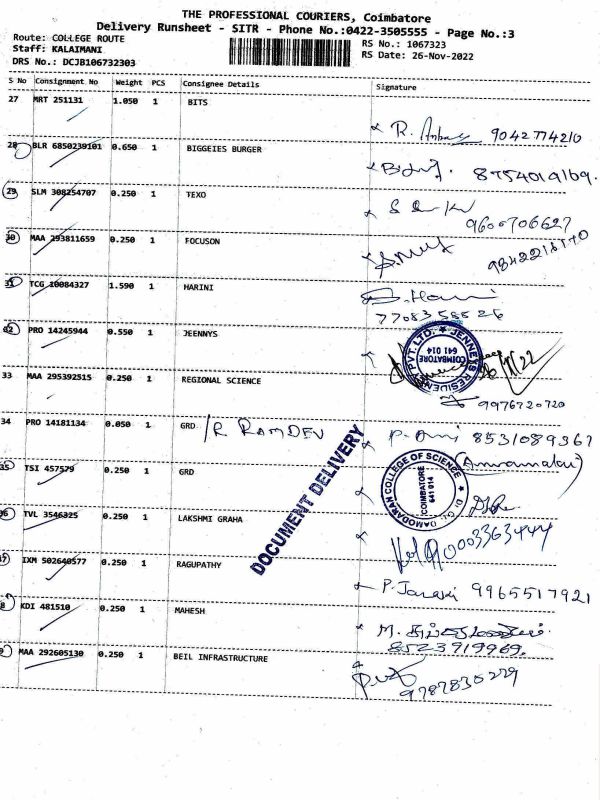 THE PROFESSIONAL COURIERS, Coimbatore
Delivery Runsheet - SITR - Phone No.:0422-3505555 - Page No.:3
Route: COLLEGE ROUTE
RS No.: 1067323
Staff: KALAIMANI
RS Date: 26-Nov-2022
DRS No.: DCJB106732303
S No Consignment No Weight PCS Consignee Details Signature
27 MRT 251131 1.050 1 BITS
R. 9042774210
28 BLR 6850239101 0.650 1 BIGGEIES BURGER
8754019169.
29 SLM 308254707 0.250 1 TEXO
9600706627
30 MAA 293811659 0.250 1 FOCUSON
31 TCG 10084327 1.590 1 HARINI
7708358526
32 PRO 14245944 0.550 1 JEENNYS
JENNEYS RESIDENCY PVT. LTD.
COIMBATORE
641 014
33 MAA 295392515 0.250 1 REGIONAL SCIENCE
9976720720
34 PRO 14181134 0.050 1 GRD /R RAMDEV
8531089367
35 TSI 457579 0.250 1 GRD
DAMODARAN COLLEGE OF SCIENCE
COIMBATORE
641 014
DOCUMENT DELIVERY
36 TVL 3546325 0.250 1 LAKSHMI GRAHA
37 IXM 502640577 0.250 1 RAGUPATHY
P. Janaki 9965517921
8 KDI 481510 0.250 1 MAHESH
M.
8523919969.
9 MAA 292605130 0.250 1 BEIL INFRASTRUCTURE
9787830229